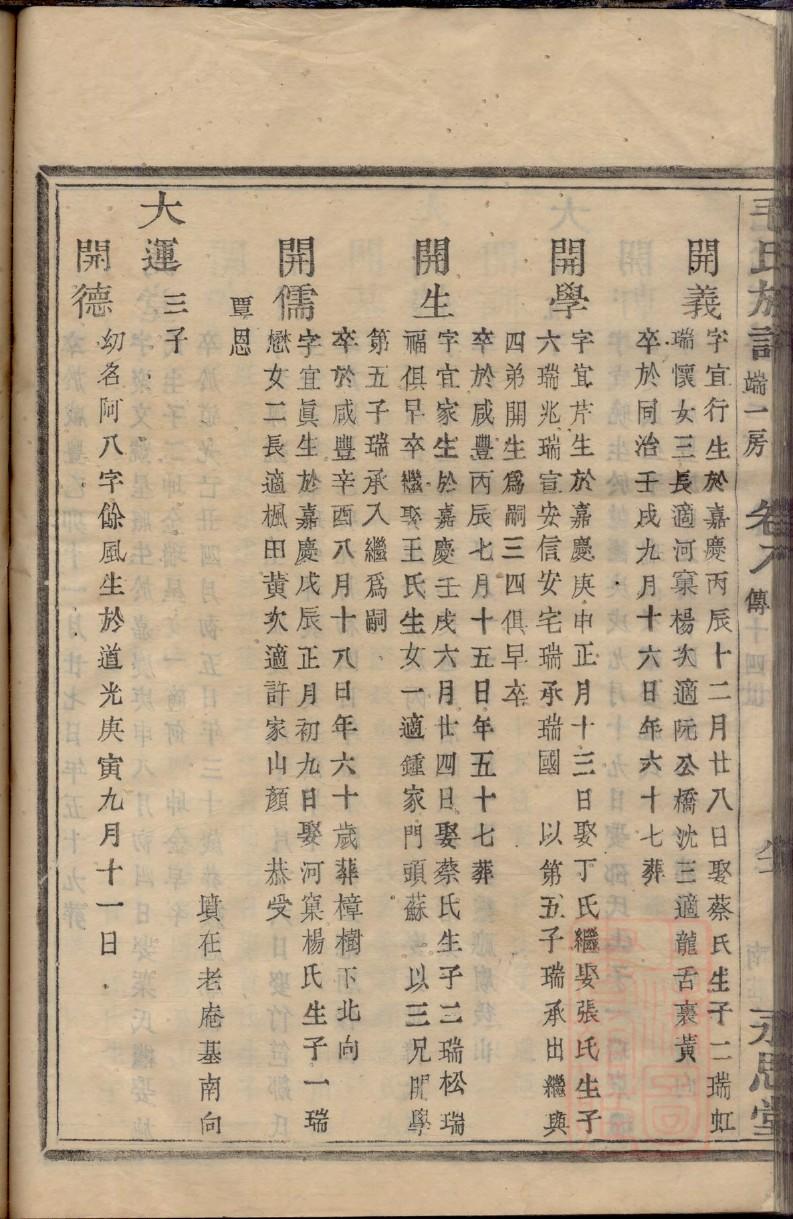 毛氏族譜 端一房 卷 傳 十四世 永思堂
開義
字宜行生於嘉慶丙辰十二月廿八日娶蔡氏生子二瑞虹
瑞懷女三長適河窠楊次適阮公橋沈三適龍舌裏黃
卒於同治壬戌九月十六日年六十七葬
開學
字宜芹生於嘉慶庚申正月十三日娶丁氏繼娶張氏生子
六瑞兆瑞宣安信安宅瑞承瑞國 以第五子瑞承出繼與
四弟開生爲嗣三四俱早卒
卒於咸豐丙辰七月十五日年五十七葬
開生
字宜家生於嘉慶壬戌六月廿四日娶蔡氏生子二瑞松瑞
福俱早卒繼娶王氏生女一適鍾家門頭蘇 以三兄開學
第五子瑞承入繼爲嗣
卒於咸豐辛酉八月十八日年六十歲葬樟樹下北向
開儒
字宜眞生於嘉慶戊辰正月初九日娶河窠楊氏生子一瑞
懋女二長適楓田黃次適許家山顏 恭受
覃恩
墳在老庵基南向
大運 三子
開德
幼名阿八字餘風生於道光庚寅九月十一日